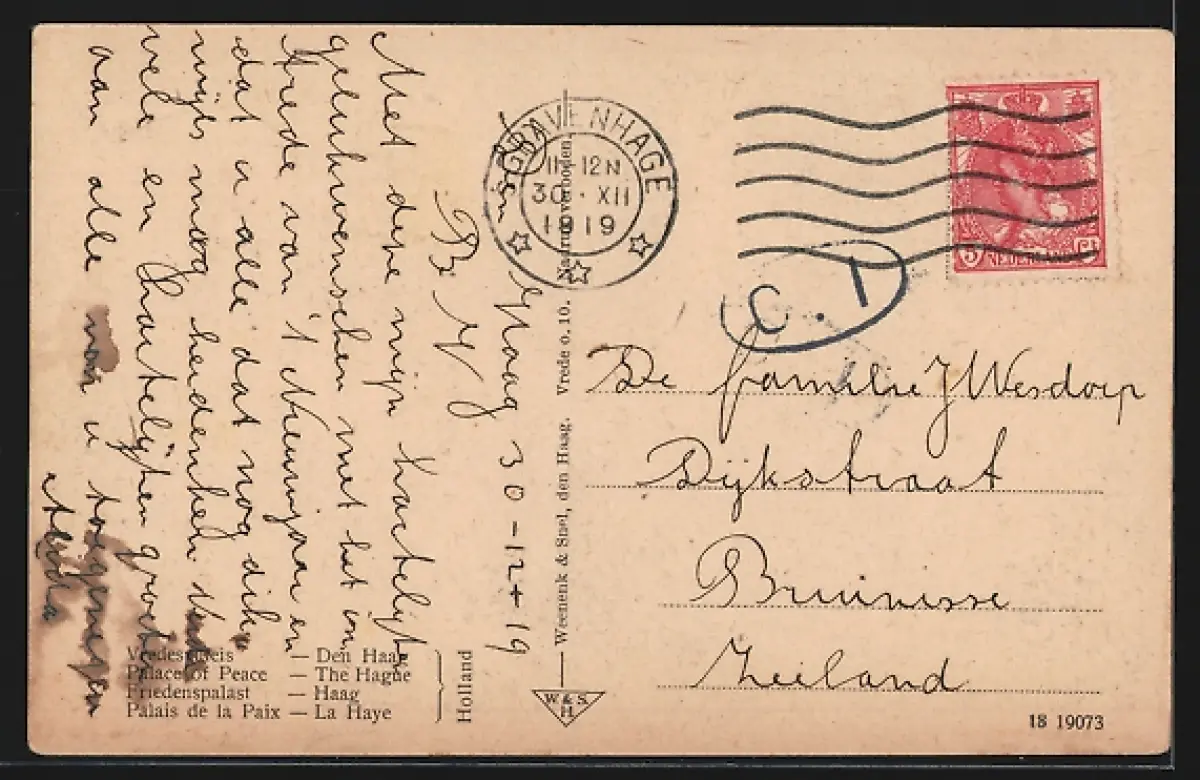 Haag 30-12-19
B V
Met deze mijn hartelijke
gelukwenschen met het en
Vrede van 't Nieuwjaar en
dat u alle dat nog dik-
wijls moog herdenken
vele en hartelijken groet
aan alle van u toegenegen
'S GRAVENHAGE
11-12N
30·XII
1919
5 NEDERLAND Ct
C. 1
De familie J Wesdorp
Dijkstraat
Bruinisse
Zeeland
Weenenk & Snel, den Haag. Vrede o. 10. Nadruk verboden
Vredespaleis — Den Haag
Palace of Peace — The Hague
Friedenspalast — Haag
Palais de la Paix — La Haye
Holland
W. & S.
H.
18 19073